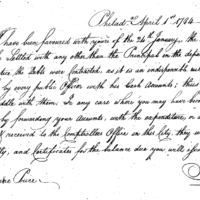 Philad.a April 1st 1784
have been favoured with yours of the 24th January. the
settled with any other than the Principal in the depa
tice, the Debt were contracted, as it is an indispensible mea
by every public Officer with his Cash Accounts; this
ddle with them. In any case where you may have been
by forwarding your Accounts, with the expenditure, or a
received to the Comptrollers Office in this City, they w
ty, and Certificates for the balance due you will [be]
Price